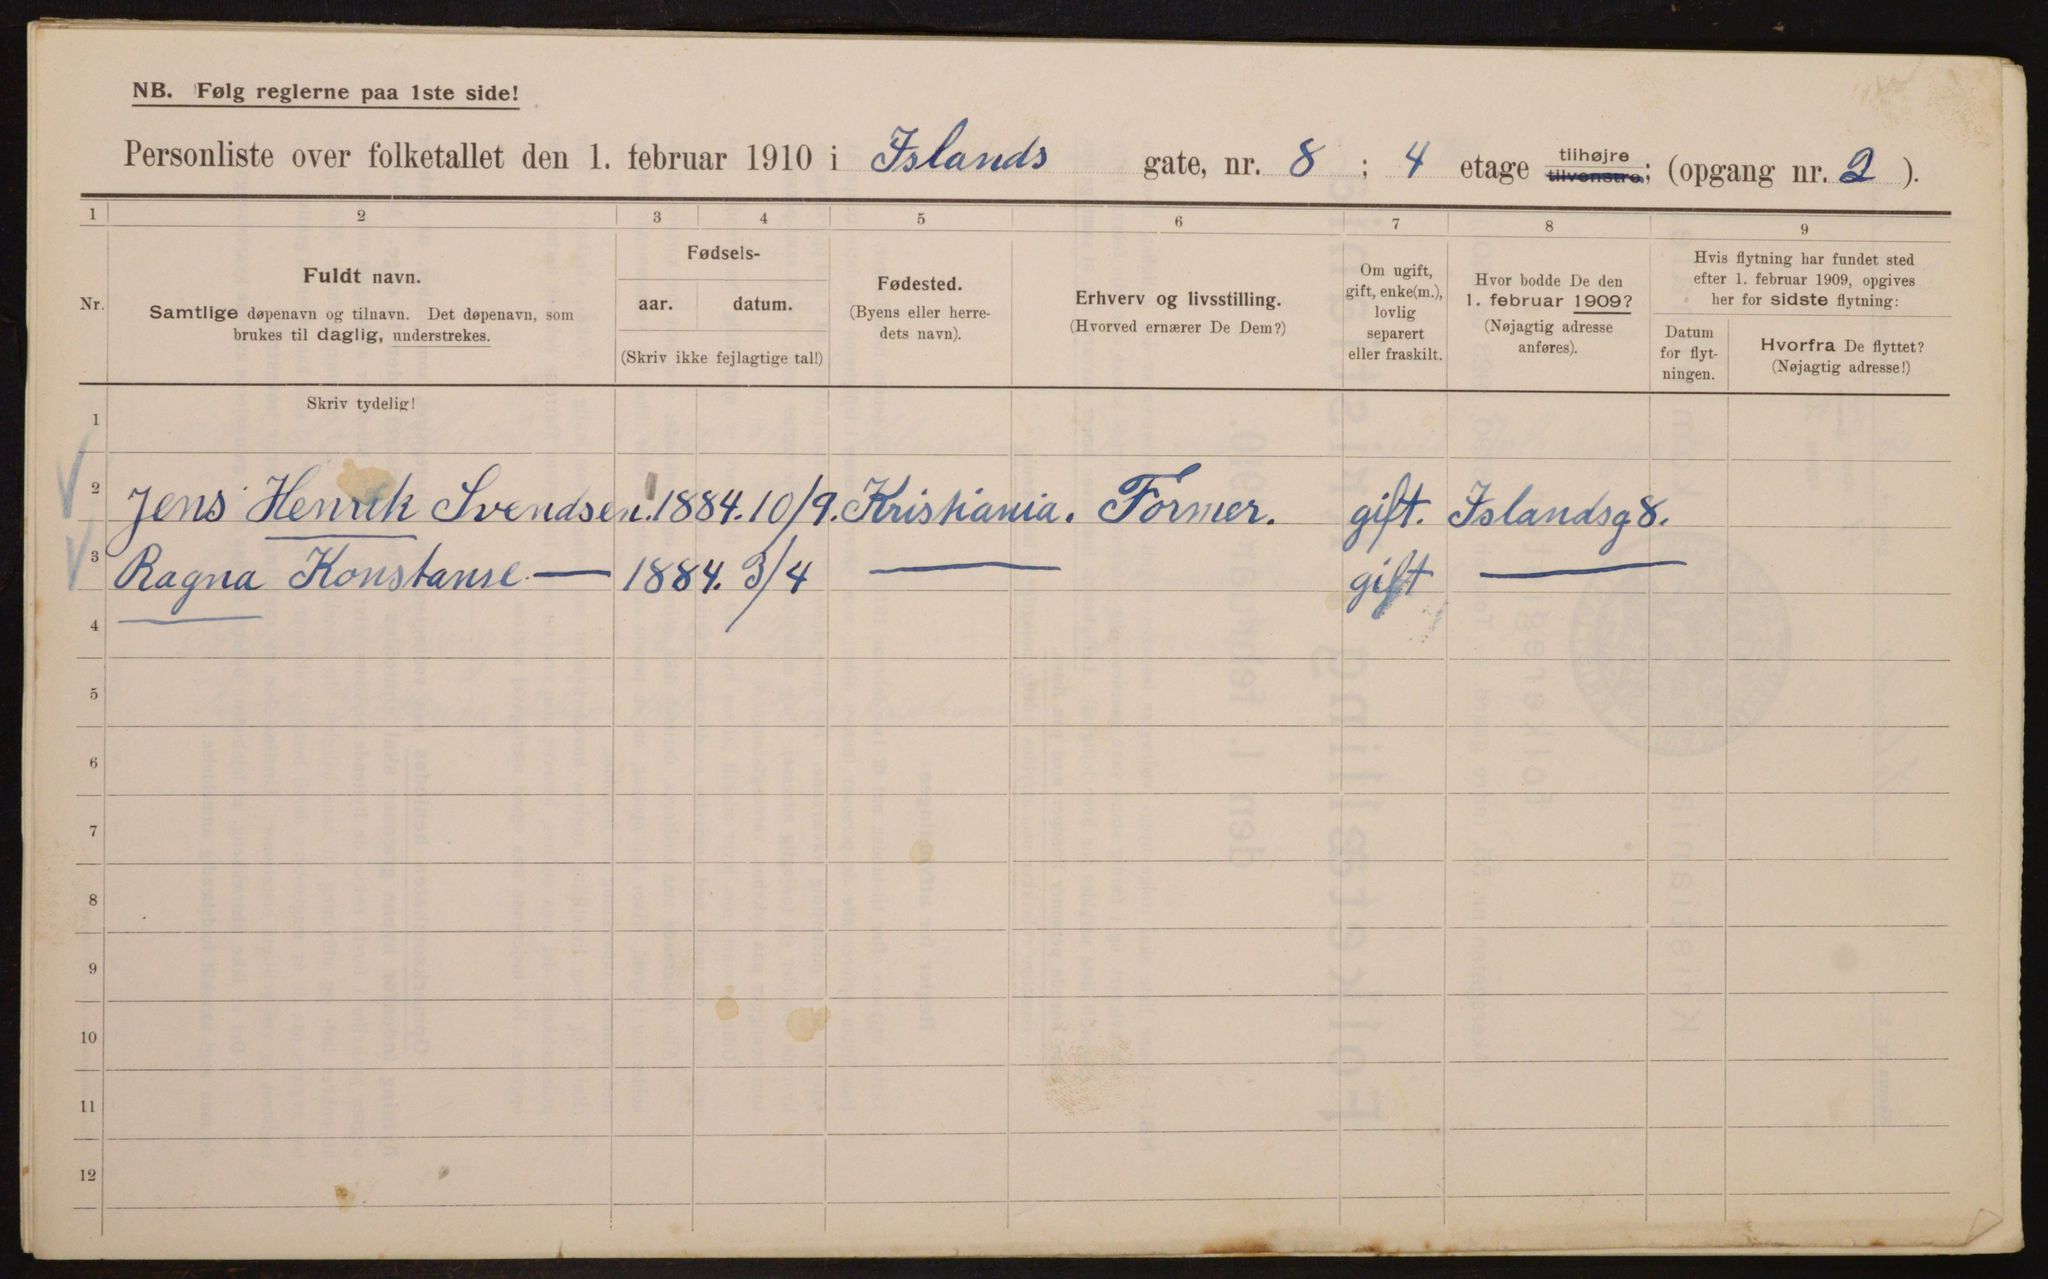 NB. Følg reglerne paa 1ste side!
Personliste over folketallet den 1. februar 1910 i Islands gate, nr. 8 ; 4 etage tilhøjre tilvenstre; (opgang nr. 2 ).
1 2 3 4 5 6 7 8 9
Nr.
Fuldt navn.
Samtlige døpenavn og tilnavn. Det døpenavn, som
brukes til daglig, understrekes.
Fødsels-
aar. datum.
(Skriv ikke fejlagtige tal!)
Fødested.
(Byens eller herre-
dets navn).
Erhverv og livsstilling.
(Hvorved ernærer De Dem?)
Om ugift,
gift, enke(m.),
lovlig
separert
eller fraskilt.
Hvor bodde De den
1. februar 1909?
(Nøjagtig adresse
anføres).
Hvis flytning har fundet sted
efter 1. februar 1909, opgives
her for sidste flytning:
Datum
for flyt-
ningen.
Hvorfra De flyttet?
(Nøjagtig adresse!)
Skriv tydelig!
1
2 Jens Henrik Svendsen. 1884. 10/9. Kristiania. Former. gift. Islandsg 8.
3 Ragna Konstanse — 1884. 3/4 — gift —
4
5
6
7
8
9
10
11
12